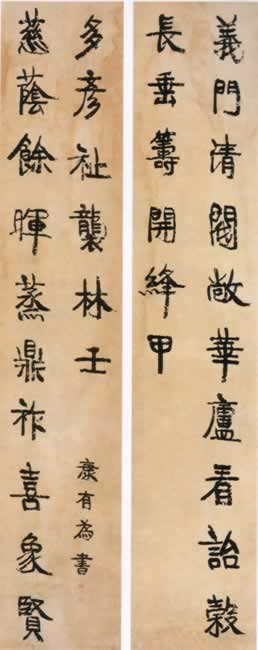 義門清閥敞華廬看詒穀
長垂籌開絳甲
慈蔭餘暉蒸鼎祚喜象賢
多彥祉襲林壬
康有為書